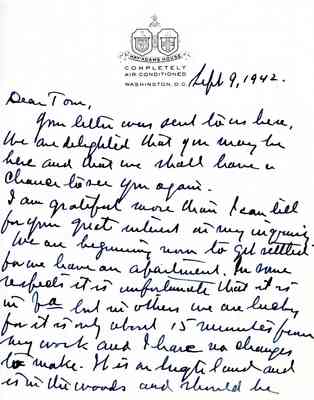 HAY-ADAMS HOUSE
COMPLETELY
AIR CONDITIONED
WASHINGTON, D.C.
Sept 9, 1942.
Dear Tom,
Your letter was sent to us here,
We are delighted that you may be
here and that we shall have a
chance to see you again.
I am grateful more than I can tell
for your great interest in my inquiry.
We are beginning now to get settled
for we have an apartment. In some
respects it is unfortunate that it is
in Va but in others we are lucky
for it is only about 15 minutes from
my work and I have no changes
to make. It is on high land and
is in the woods and should be